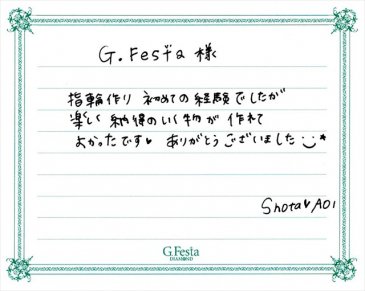 G.Festa 様
指輪作り 初めての経験でしたが
楽しく 納得のいく物が 作れて
よかったです♥ ありがとうございました
Shota♥AOI
G.Festa
DIAMOND